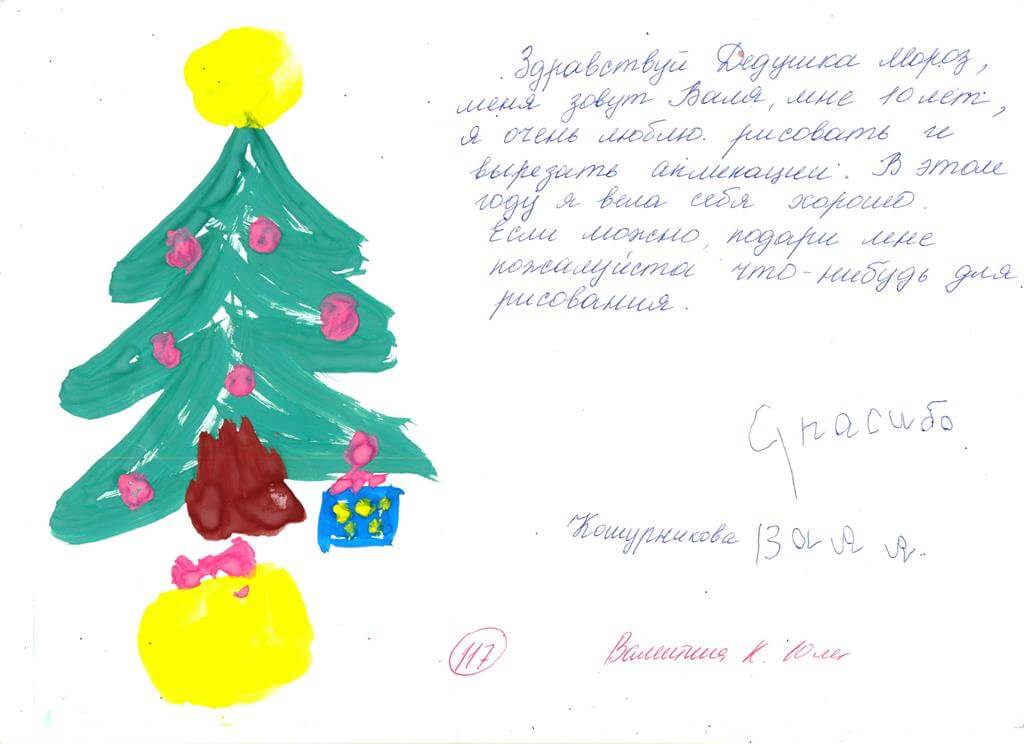 Здравствуй Дедушка Мороз,
меня зовут Валя, мне 10 лет,
я очень люблю. рисовать и
вырезать апликации. В этом
году я вела себя хорошо.
Если можно, подари мне
пожалуйста что-нибудь для
рисования.
Спасибо
Кошурникова Валя.
117
Валентина К. 10 лет